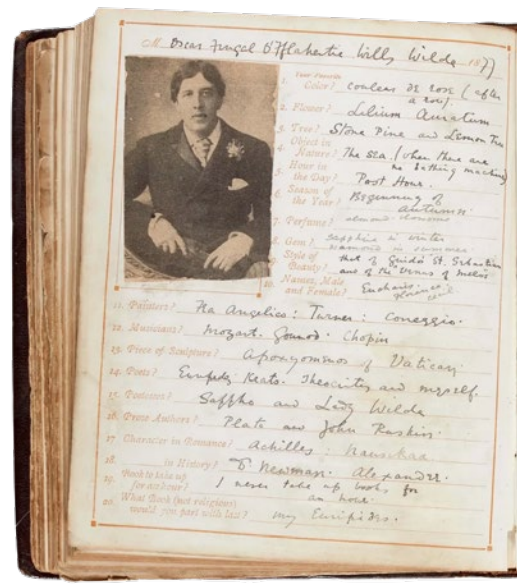 M Oscar Fingal O'Flahertie Wills Wilde 1877
Your Favorite
1. Color? couleur de rose (after
a rose).
2. Flower? Lilium Auratum
3. Tree? Stone Pine and Lemon Tree
4. Object in
Nature? The sea. (when there are
no bathing machines)
5. Hour in
the Day? Post Hour.
6. Season of
the Year? Beginning of
autumn.
7. Perfume? almond blossoms
8. Gem? Sapphire in winter
diamond in summer
9. Style of
Beauty? that of Guido's St. Sebastian
and of the Venus of Melos
10. Names, Male
and Female? Eucharis.
Florence
11. Painters? Fra Angelico: Turner: Correggio.
12. Musicians? Mozart. Gounod. Chopin
13. Piece of Sculpture? Apoxyomenos of Vatican
14. Poets? Euripides Keats. Theocritus and myself.
15. Poetesses? Sappho and Lady Wilde
16. Prose Authors? Plato and John Ruskin.
17. Character in Romance? Achilles: Nausikaa
18. in History? Newman. Alexander.
19. Book to take up
for an hour? I never take up books for
an hour.
20. What Book (not religious)
would you part with last? my Euripides.